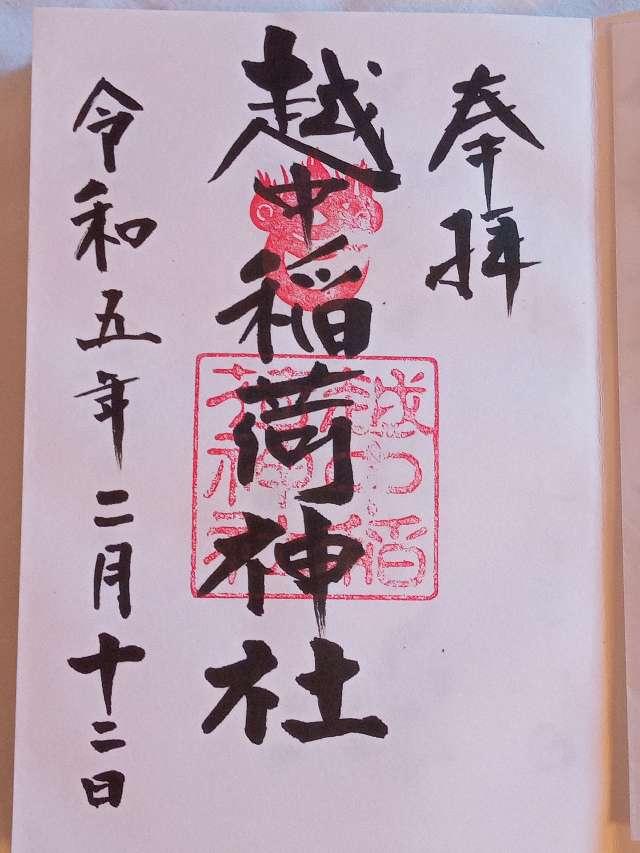 奉拝
越中稲荷神社
越中稲
荷神社
令和五年二月十二日